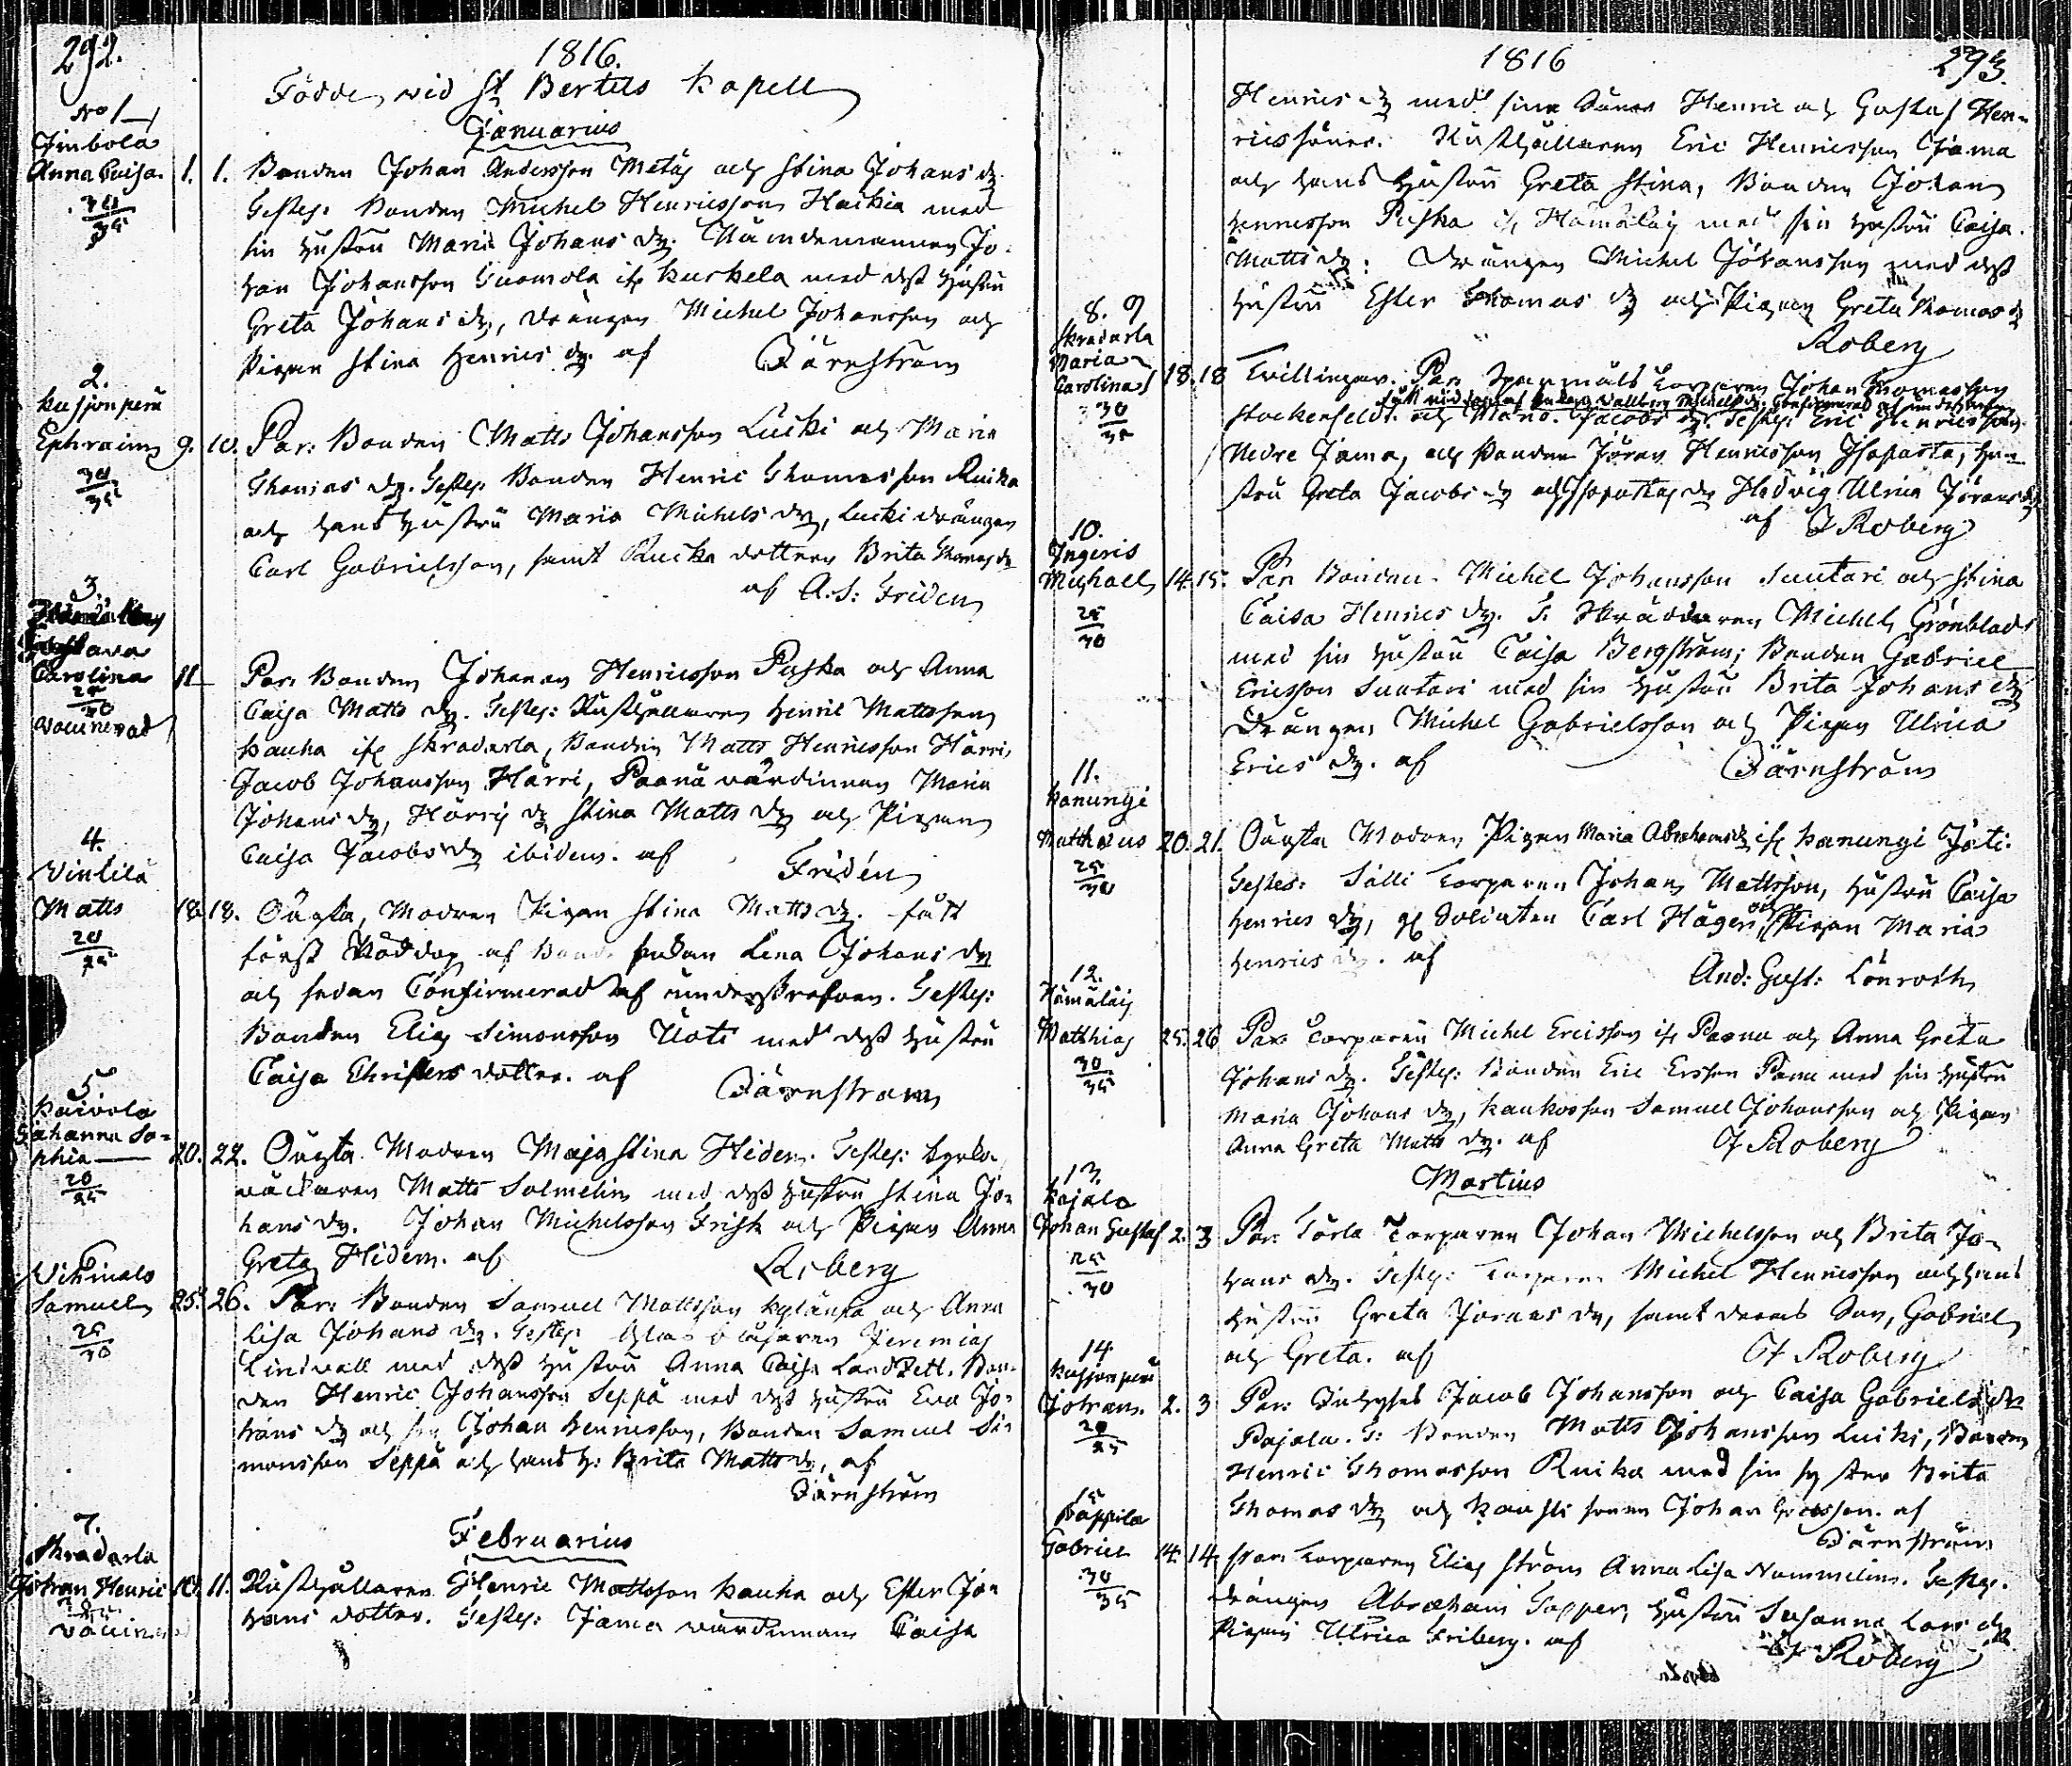 292.
1816.
Födde, wid St Bertils Kapell
Januarius
No 1
Jimbola
Anna Caisa. 1. 1. Bonden Johan Andersson Metäs och Stina Johans dr
30
35
Testes: Bonden Michel Henricsson Hackia med
sin hustru Maria Johans dr. Nämndemannen Jo-
han Johansson Tuomola if Kuskela med dess hustru
Greta Johans dr, drängen Michel Johansson och
Pigan Stina Henrics dr. af Därnström
2.
Kusjonperä
Ephraim 9. 10. Par: Bonden Matts Johansson Lucki och Maria
30
35
Thomas dr. Testes: Bonden Henric Thomasson Ruika
och hans hustru Maria Michels dr, Lucki drängen
Carl Gabrielsson, samt Ruika dottren Brita Thomas dr
af A. J: Friden
3.
Gustava
Carolina 11 Par: Bonden Johan Henricsson Paska och Anna
25
30
vaccinerad
Caisa Matts dr. Testes: Rusthållaren Henric Mattsson
Kauha if Skradarla, Bonden Matts Henricsson Härri,
Jacob Johansson Härri, Paana värdinnan Maria
Johans dr, Härri dr Stina Matts dr och Pigan
Caisa Jacobs dr ibidem. af Fridén
4.
Vinlilä
Matts 18. 18. Oägta, Modren Pigan Stina Matts dr. fått
20
25
först Nöddop af Bonde Lena Johans dr
och sedan Confirmerad af underskrefven. Testes:
Bonden Elias Simonsson Uoti med dess hustru
Caisa Christers dotter. af Därnström
5
Kaivola
Johanna So-
phia 20. 22. Oägta. Modren Maja Stina Hidén. Testes: Kyrko
20
25
väcktaren Matts Solmelin med dess hustru Stina Jo-
hans dr. Johan Michelsson Grisk och Pigan Anna
Greta Hidém. af Roberg
6
Vihiniala
Samuel 25. 26. Par: Bonden Samuel Mattsson Kylänpä och Anna
25
30
Lisa Johans dr. Testes Glas blåsaren Jeremias
Lindvall med dess hustru Anna Caisa Landzett. Bon-
den Henric Johansson Seppä med dess hustru Eva Jo-
hans dr och Johan Henricsson, Bonden Samuel Si-
monsson Seppä och hans h: Brita Matts dr, af
Därnström
Februarius
7.
Skradarla
Johan Henric 10. 11. Rusthållaren Henric Mattsson Kauha och Ester Jo-
hans dotter. Testes: Jama värdinnan Caisa
1816
293.
Henrics dr med sine Söner Henric och Gustaf Hen-
rics söner. Rusthållaren Eric Henricsson Jama
och hans hustru Greta Stina, Bonden Johan
Henricsson Paska if Hämäläij med sin hustru Caisa
Matts dr. Drängen Michel Johansson med dess
hustru Ester Thomas dr och Pigan Greta Thomas dr
Roberg
8. 9
Skradarla
Maria
Carolina 18. 18 Tvillingar. Par Torparen Johan Thomasson
30
35
Stockenfeldt. och Maria. Jacobs dr. Testes: Eric Henricsson
Nedre Jama, och Bonden Jöran Henricsson Isopasta, hu-
stru Greta Jacobs dr och Isopasta dr Hedvig Ulrica Jörans dr
af Roberg
10.
Ingeris
Michael 14. 15. Par Bonden Michel Johansson Suutari och Stina
25
30
Caisa Henrics dr. T. Skräddaren Michel Grönblad
med sin hustru Caisa Bergström; Bonden Gabriel
Ericsson Suutari med sin hustru Brita Johans dr
Drängen Michel Gabrielsson och Pigan Ulrica
Erics dr. af Därnström
11.
Kanungi
Matthæus 20. 21. Oägta Modren Pigan Maria Abrahams dr if Kanungi Joti.
25
30
Testes: Sälli Torparen Johan Mattsson, hustru Caisa
Henrics dr, gl Soldaten Carl Hägert, och Pigan Maria
Henrics dr. af
And: Gust: Lönroth
12.
Hämäläij
Matthias 25. 26 Par Torparen Michel Ericsson if Paana och Anna Greta
30
35
Johans dr. Testes: Bonden Eric Ersson Pana med sin hustru
Maria Johans dr, Samuel Johansson och Pigan
Anna Greta Matts dr. af Roberg
Martius
13.
Kajala
Johan Gustaf 2. 3 Par: Torla Torparen Johan Michelsson och Brita Jo-
25
30
hans dr. Testes: Torparen Michel Henricsson och hans
hustru Greta Jörans dr, samt deras Son, Gabriel
och Greta. af Roberg
14
Kusjonperä
Johan. 2. 3 Par: Inhyses Jacob Johansson och Caisa Gabriels dr
20
25
Pajala. T: Bonden Matts Johansson Lucki, Bonden
Henric Thomasson Ruika med sin syster Brita
Thomas dr och Kausti sonen Johan Ericsson. af
Därnström
15
Pappila
Gabriel 14. 14. Par: Torparen Elias Ström Anna Lisa Nummelin. Testes.
30
35
Drängen Abraham Topper, hustru Susanna Lars dr
Pigan Ulrica Friberg. af Roberg